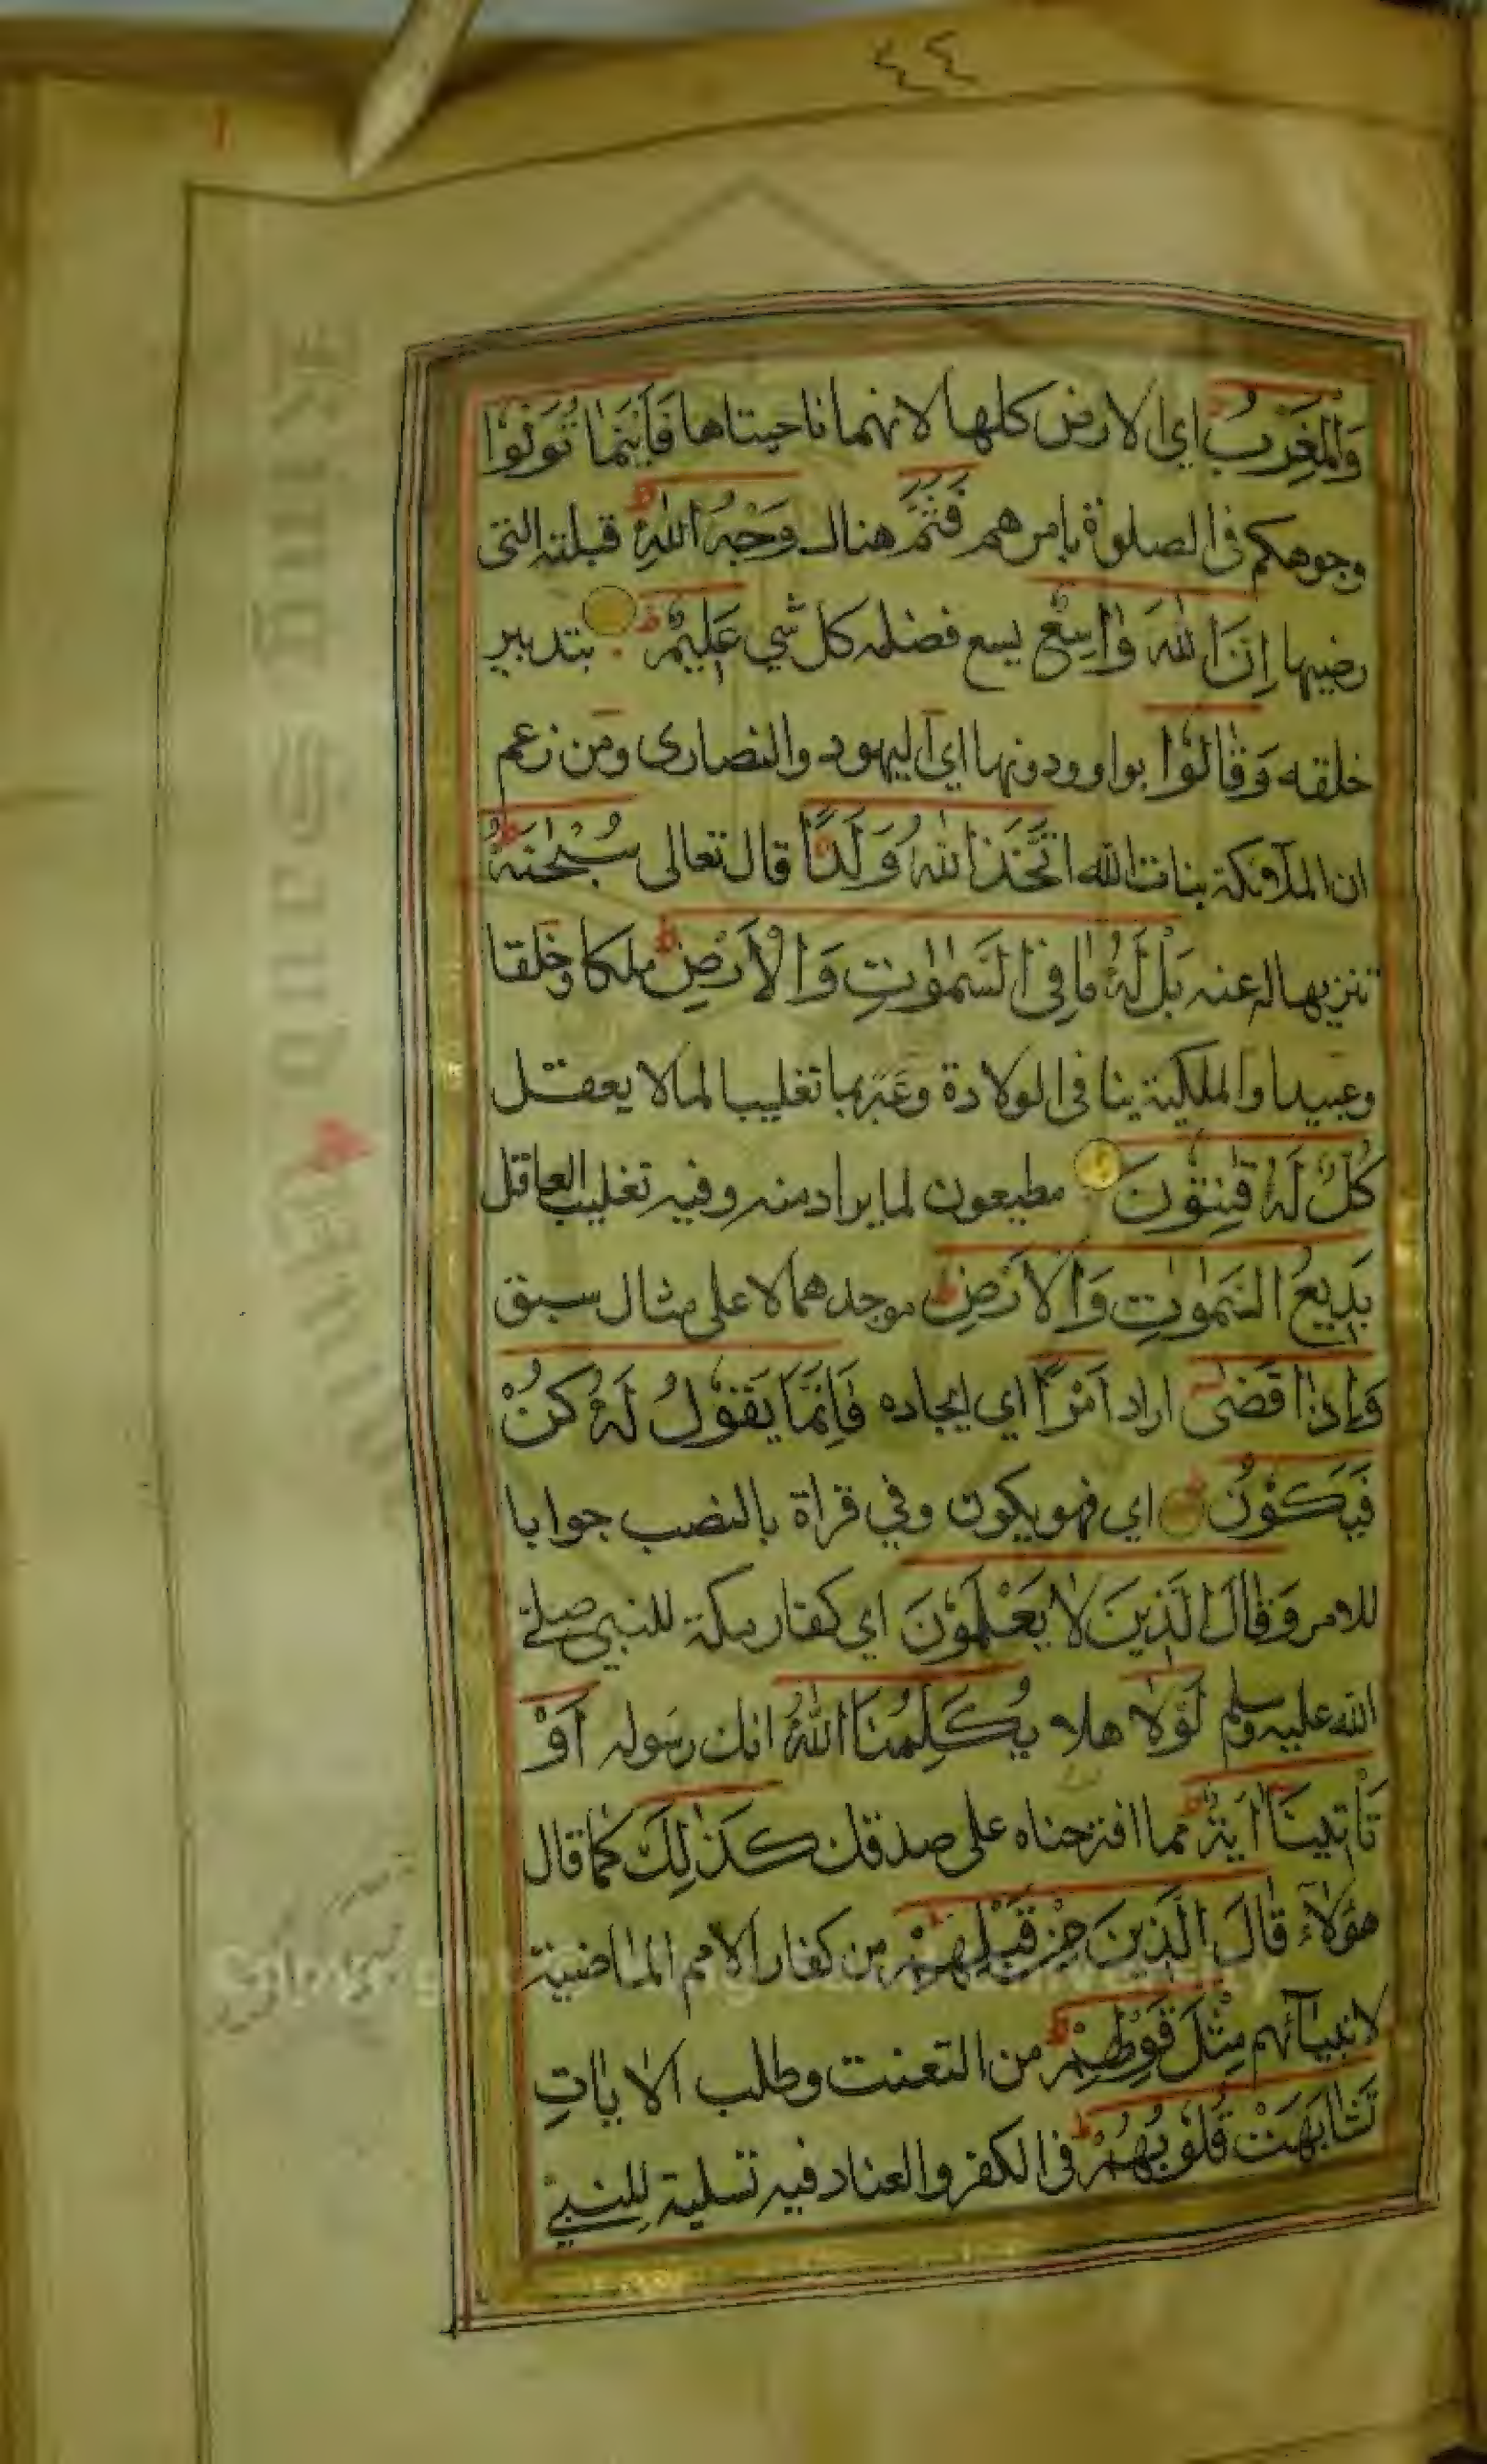 ٤٤
وَالْمَغْرِبُ اي الارض كلها لانهما ناحيتاها فَاَيْنَمَا تُوَلُّوْا
وجوهكم في الصلوة بامرهم فَثَمَّ هناك وَجْهُ اللّٰهِ قبلته التى
رضيها اِنَّ اللّٰهَ وَاسِعٌ يسع فضله كل شي عَلِيْمٌ بتدبير
خلقه وَقَالُوْا بواو ودونها اي اليهود والنصارى ومن زعم
ان الملآئكة بنات الله اتَّخَذَ اللّٰهُ وَلَدًا قال تعالى سُبْحٰنَهٗ
تنزيها له عنه بَلْ لَهٗ مَا فِي السَّمٰوٰتِ وَالْاَرْضِ ملكا وخلقا
وعبيدا والملكية ينافى الولادة وعَبّر بما تغليبا لما لا يعقل
كُلٌّ لَهٗ قٰنِتُوْنَ مطيعون لما يراد منه وفيه تغليب العاقل
بَدِيْعُ السَّمٰوٰتِ وَالْاَرْضِ موجدهما لا على مثال سبق
وَاِذَا قَضٰى اراد اَمْرًا اي ايجاده فَاِنَّمَا يَقُوْلُ لَهٗ كُنْ
فَيَكُوْنُ اي فهو يكون وفي قراة بالنصب جوابا
للامر وَقَالَ الَّذِيْنَ لَا يَعْلَمُوْنَ اي كفار مكة للنبي صلے
الله عليه وسلم لَوْلَا هلا يُكَلِّمُنَا اللّٰهُ انك رسوله اَوْ
تَاْتِيْنَا اٰيَةٌ مما اقترحناه على صدقك كَذٰلِكَ كما قال
هؤلاء قَالَ الَّذِيْنَ مِنْ قَبْلِهِمْ من كفار الامم الماضية
لانبيآئهم مِثْلَ قَوْلِهِمْ من التعنت وطلب الايات
تَشَابَهَتْ قُلُوْبُهُمْ في الكفر والعناد فيه تسلية للنبي